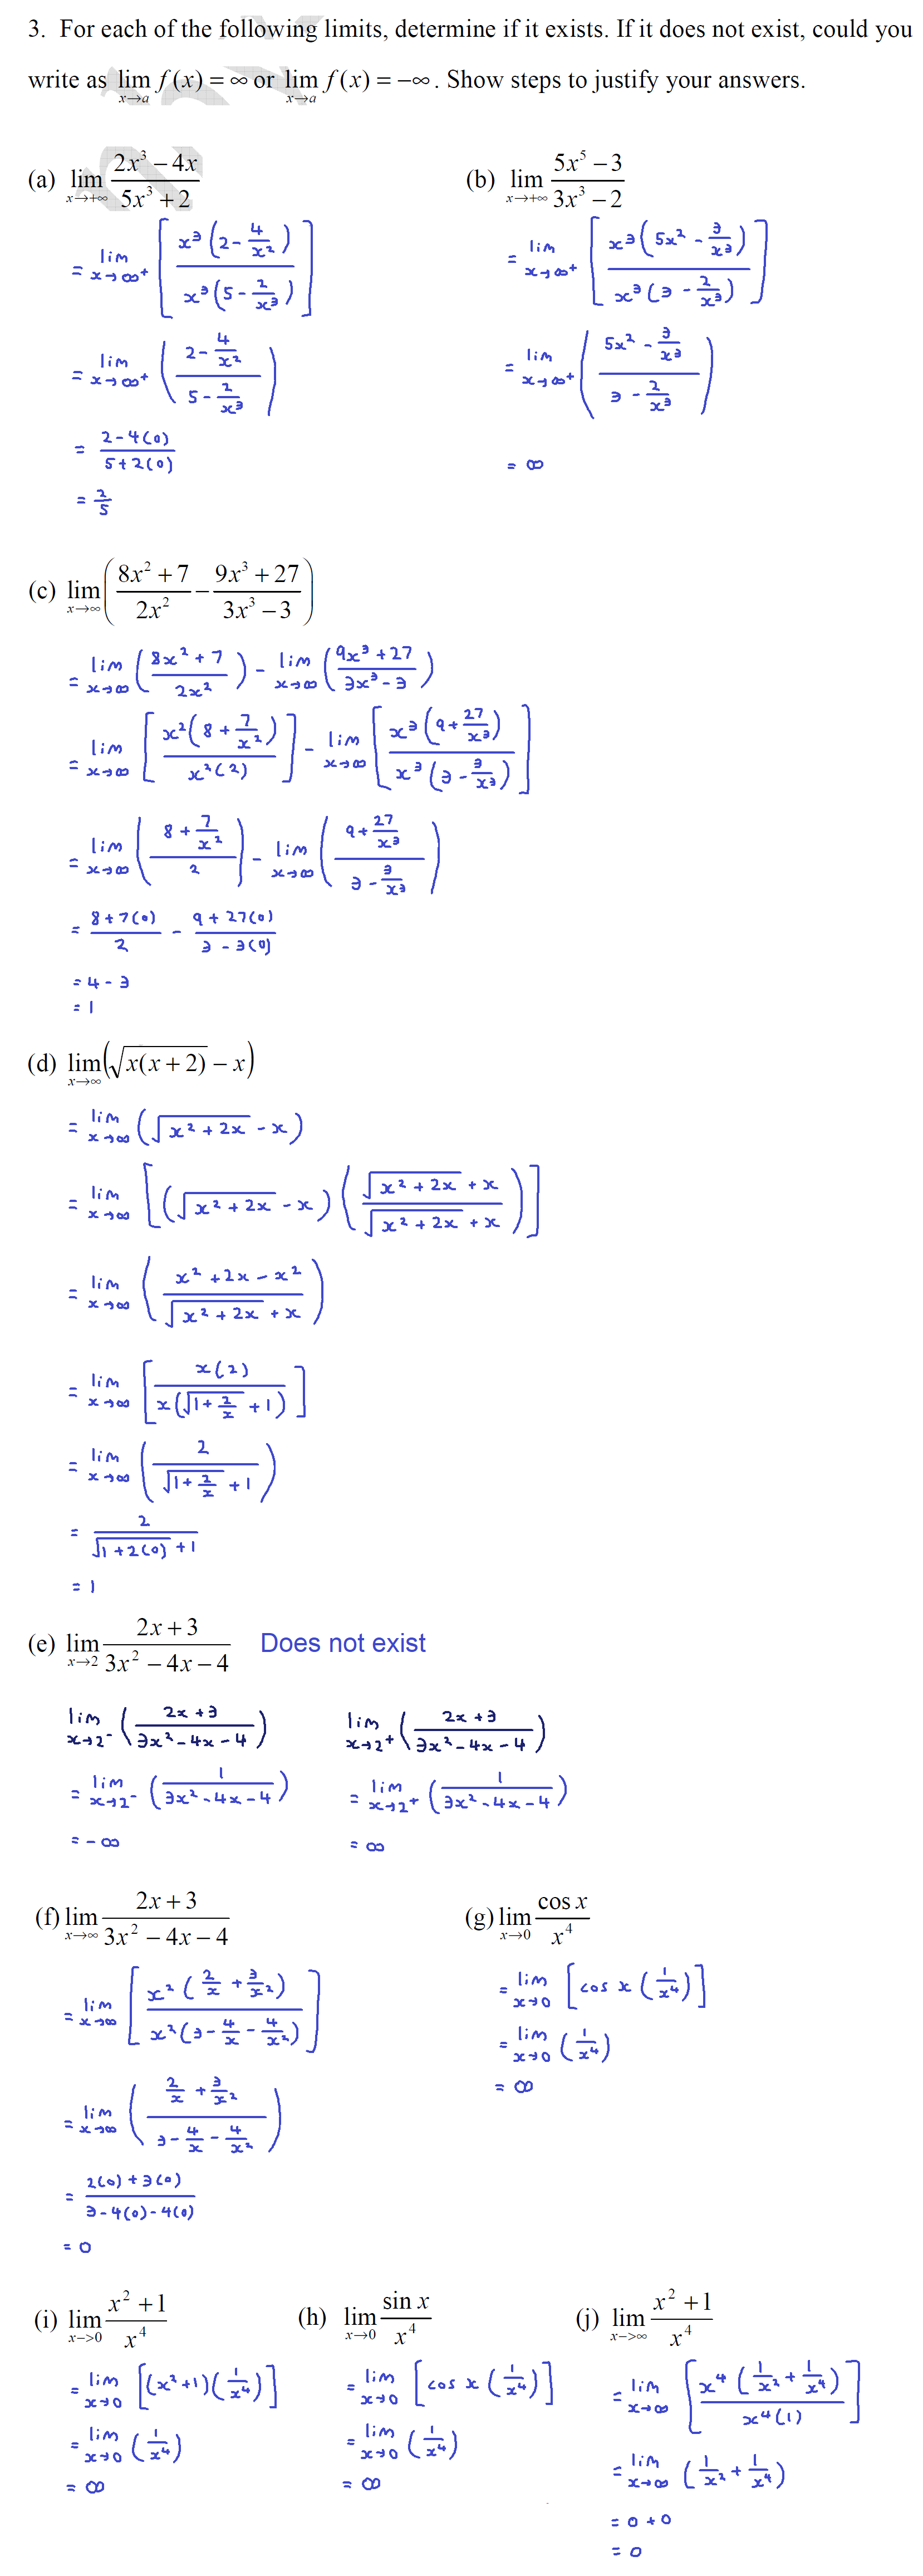 3. For each of the following limits, determine if it exists. If it does not exist, could you
write as lim_{x→a} f(x) = ∞ or lim_{x→a} f(x) = −∞. Show steps to justify your answers.
(a) lim_{x→+∞} (2x³ − 4x)/(5x³ + 2)
= lim_{x→∞⁺} [x³(2 − 4/x²)/(x³(5 − 2/x³))]
= lim_{x→∞⁺} ((2 − 4/x²)/(5 − 2/x³))
= (2 − 4(0))/(5 + 2(0))
= 2/5
(b) lim_{x→+∞} (5x⁵ − 3)/(3x³ − 2)
= lim_{x→∞⁺} [x³(5x² − 3/x³)/(x³(3 − 2/x³))]
= lim_{x→∞⁺} ((5x² − 3/x³)/(3 − 2/x³))
= ∞
(c) lim_{x→∞} ((8x² + 7)/(2x²) − (9x³ + 27)/(3x³ − 3))
= lim_{x→∞} ((8x² + 7)/(2x²)) − lim_{x→∞} ((9x³ + 27)/(3x³ − 3))
= lim_{x→∞} [x²(8 + 7/x²)/(x²(2))] − lim_{x→∞} [x³(9 + 27/x³)/(x³(3 − 3/x³))]
= lim_{x→∞} ((8 + 7/x²)/2) − lim_{x→∞} ((9 + 27/x³)/(3 − 3/x³))
= (8 + 7(0))/2 − (9 + 27(0))/(3 − 3(0))
= 4 − 3
= 1
(d) lim_{x→∞} (√(x(x + 2)) − x)
= lim_{x→∞} (√(x² + 2x) − x)
= lim_{x→∞} [(√(x² + 2x) − x)((√(x² + 2x) + x)/(√(x² + 2x) + x))]
= lim_{x→∞} ((x² + 2x − x²)/(√(x² + 2x) + x))
= lim_{x→∞} [x(2)/(x(√(1 + 2/x) + 1))]
= lim_{x→∞} (2/(√(1 + 2/x) + 1))
= 2/(√(1 + 2(0)) + 1)
= 1
(e) lim_{x→2} (2x + 3)/(3x² − 4x − 4) Does not exist
lim_{x→2⁻} ((2x + 3)/(3x² − 4x − 4))
= lim_{x→2⁻} (1/(3x² − 4x − 4))
= −∞
lim_{x→2⁺} ((2x + 3)/(3x² − 4x − 4))
= lim_{x→2⁺} (1/(3x² − 4x − 4))
= ∞
(f) lim_{x→∞} (2x + 3)/(3x² − 4x − 4)
= lim_{x→∞} [x²(2/x + 3/x²)/(x²(3 − 4/x − 4/x²))]
= lim_{x→∞} ((2/x + 3/x²)/(3 − 4/x − 4/x²))
= (2(0) + 3(0))/(3 − 4(0) − 4(0))
= 0
(g) lim_{x→0} cos x/x⁴
= lim_{x→0} [cos x (1/x⁴)]
= lim_{x→0} (1/x⁴)
= ∞
(i) lim_{x->0} (x² + 1)/x⁴
= lim_{x→0} [(x² + 1)(1/x⁴)]
= lim_{x→0} (1/x⁴)
= ∞
(h) lim_{x→0} sin x/x⁴
= lim_{x→0} [cos x (1/x⁴)]
= lim_{x→0} (1/x⁴)
= ∞
(j) lim_{x->∞} (x² + 1)/x⁴
= lim_{x→∞} [x⁴(1/x² + 1/x⁴)/(x⁴(1))]
= lim_{x→∞} (1/x² + 1/x⁴)
= 0 + 0
= 0